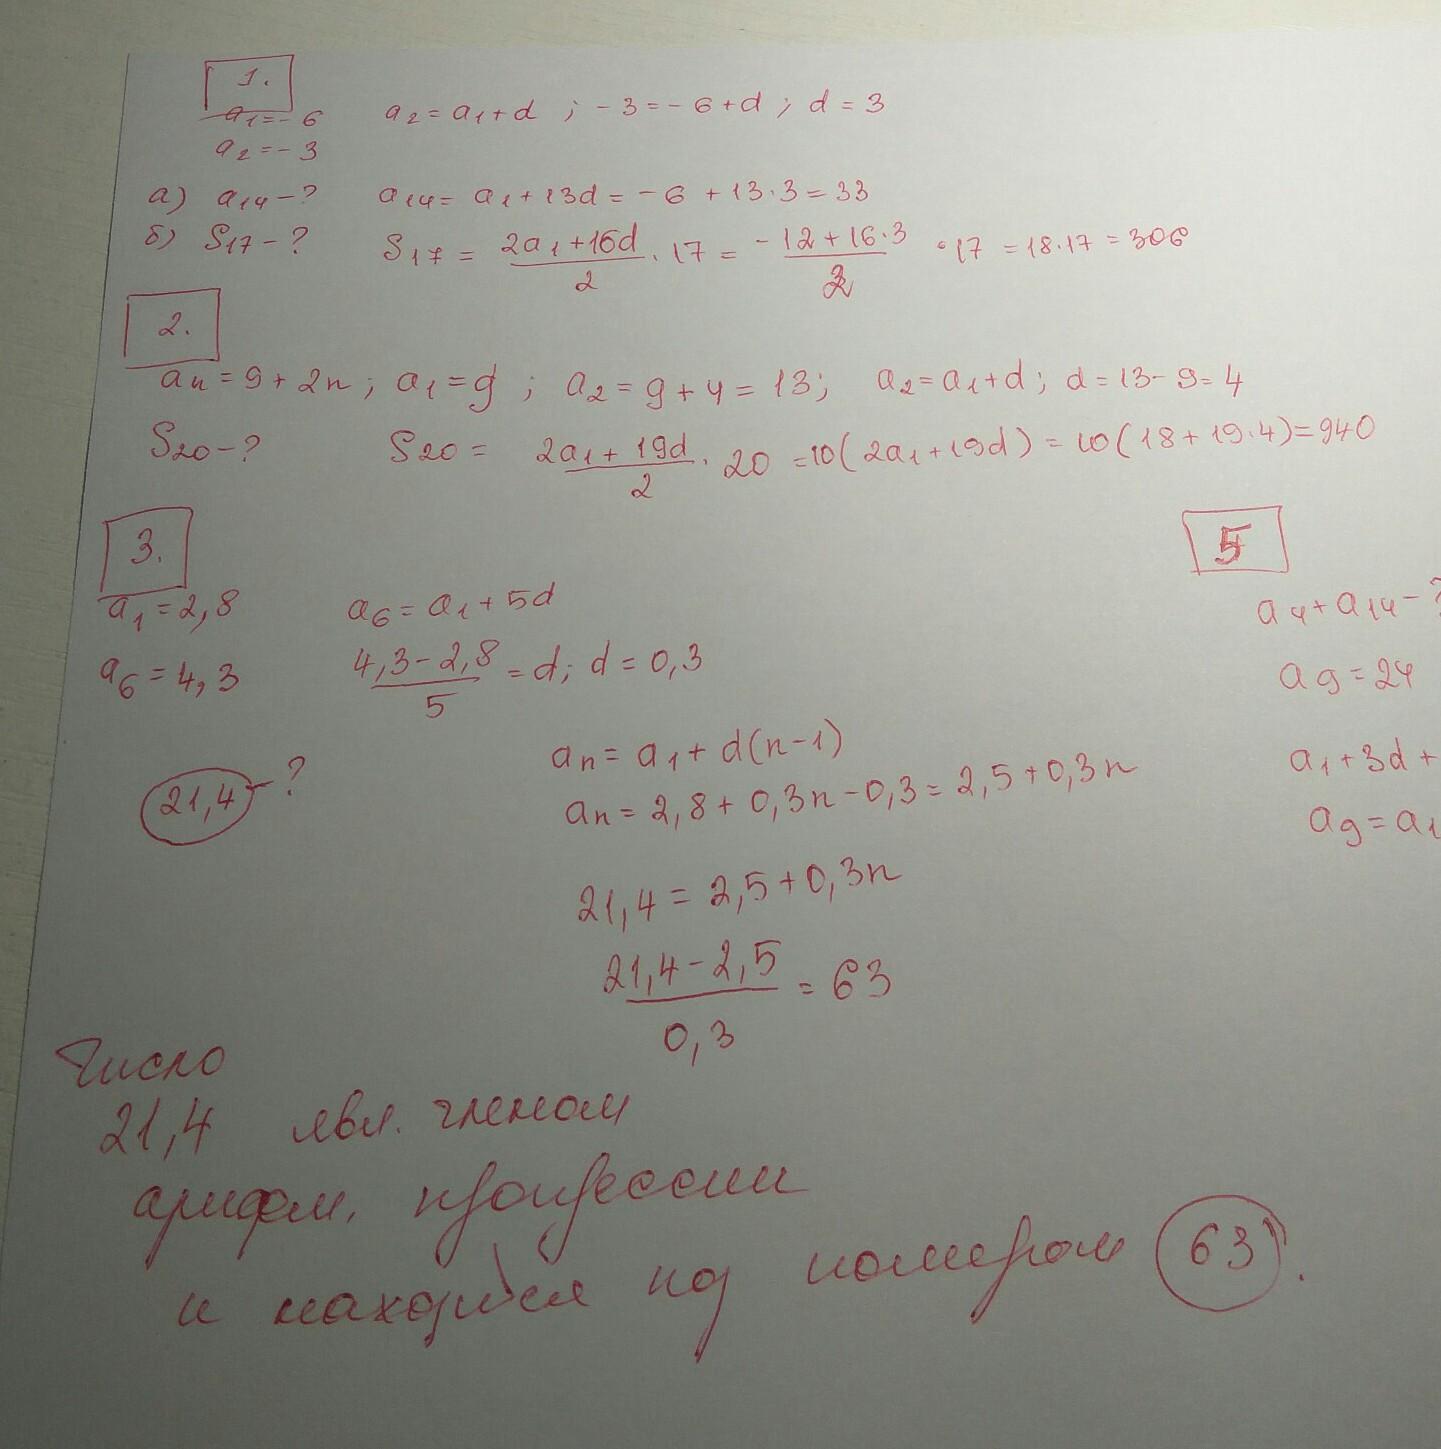 1.
a₁ = -6 a₂ = a₁ + d ; -3 = -6 + d ; d = 3
a₂ = -3
а) a₁₄ - ? a₁₄ = a₁ + 13d = -6 + 13·3 = 33
б) S₁₇ - ? S₁₇ = (2a₁ + 16d)/2 · 17 = (-12 + 16·3)/2 · 17 = 18·17 = 306
2.
aₙ = 9 + 2n ; a₁ = 9 ; a₂ = 9 + 4 = 13 ; a₂ = a₁ + d ; d = 13 - 9 = 4
S₂₀ - ? S₂₀ = (2a₁ + 19d)/2 · 20 = 10(2a₁ + 19d) = 10(18 + 19·4) = 940
3.
a₁ = 2,8 a₆ = a₁ + 5d
a₆ = 4,3 (4,3 - 2,8)/5 = d; d = 0,3
21,4 - ?
aₙ = a₁ + d(n-1)
aₙ = 2,8 + 0,3n - 0,3 = 2,5 + 0,3n
21,4 = 2,5 + 0,3n
(21,4 - 2,5)/0,3 = 63
Число
21,4 явл. членом
арифм. прогрессии
и находится под номером 63.
5
a₄ + a₁₄ - ?
a₉ = 24
a₁ + 3d +
a₉ = a₁